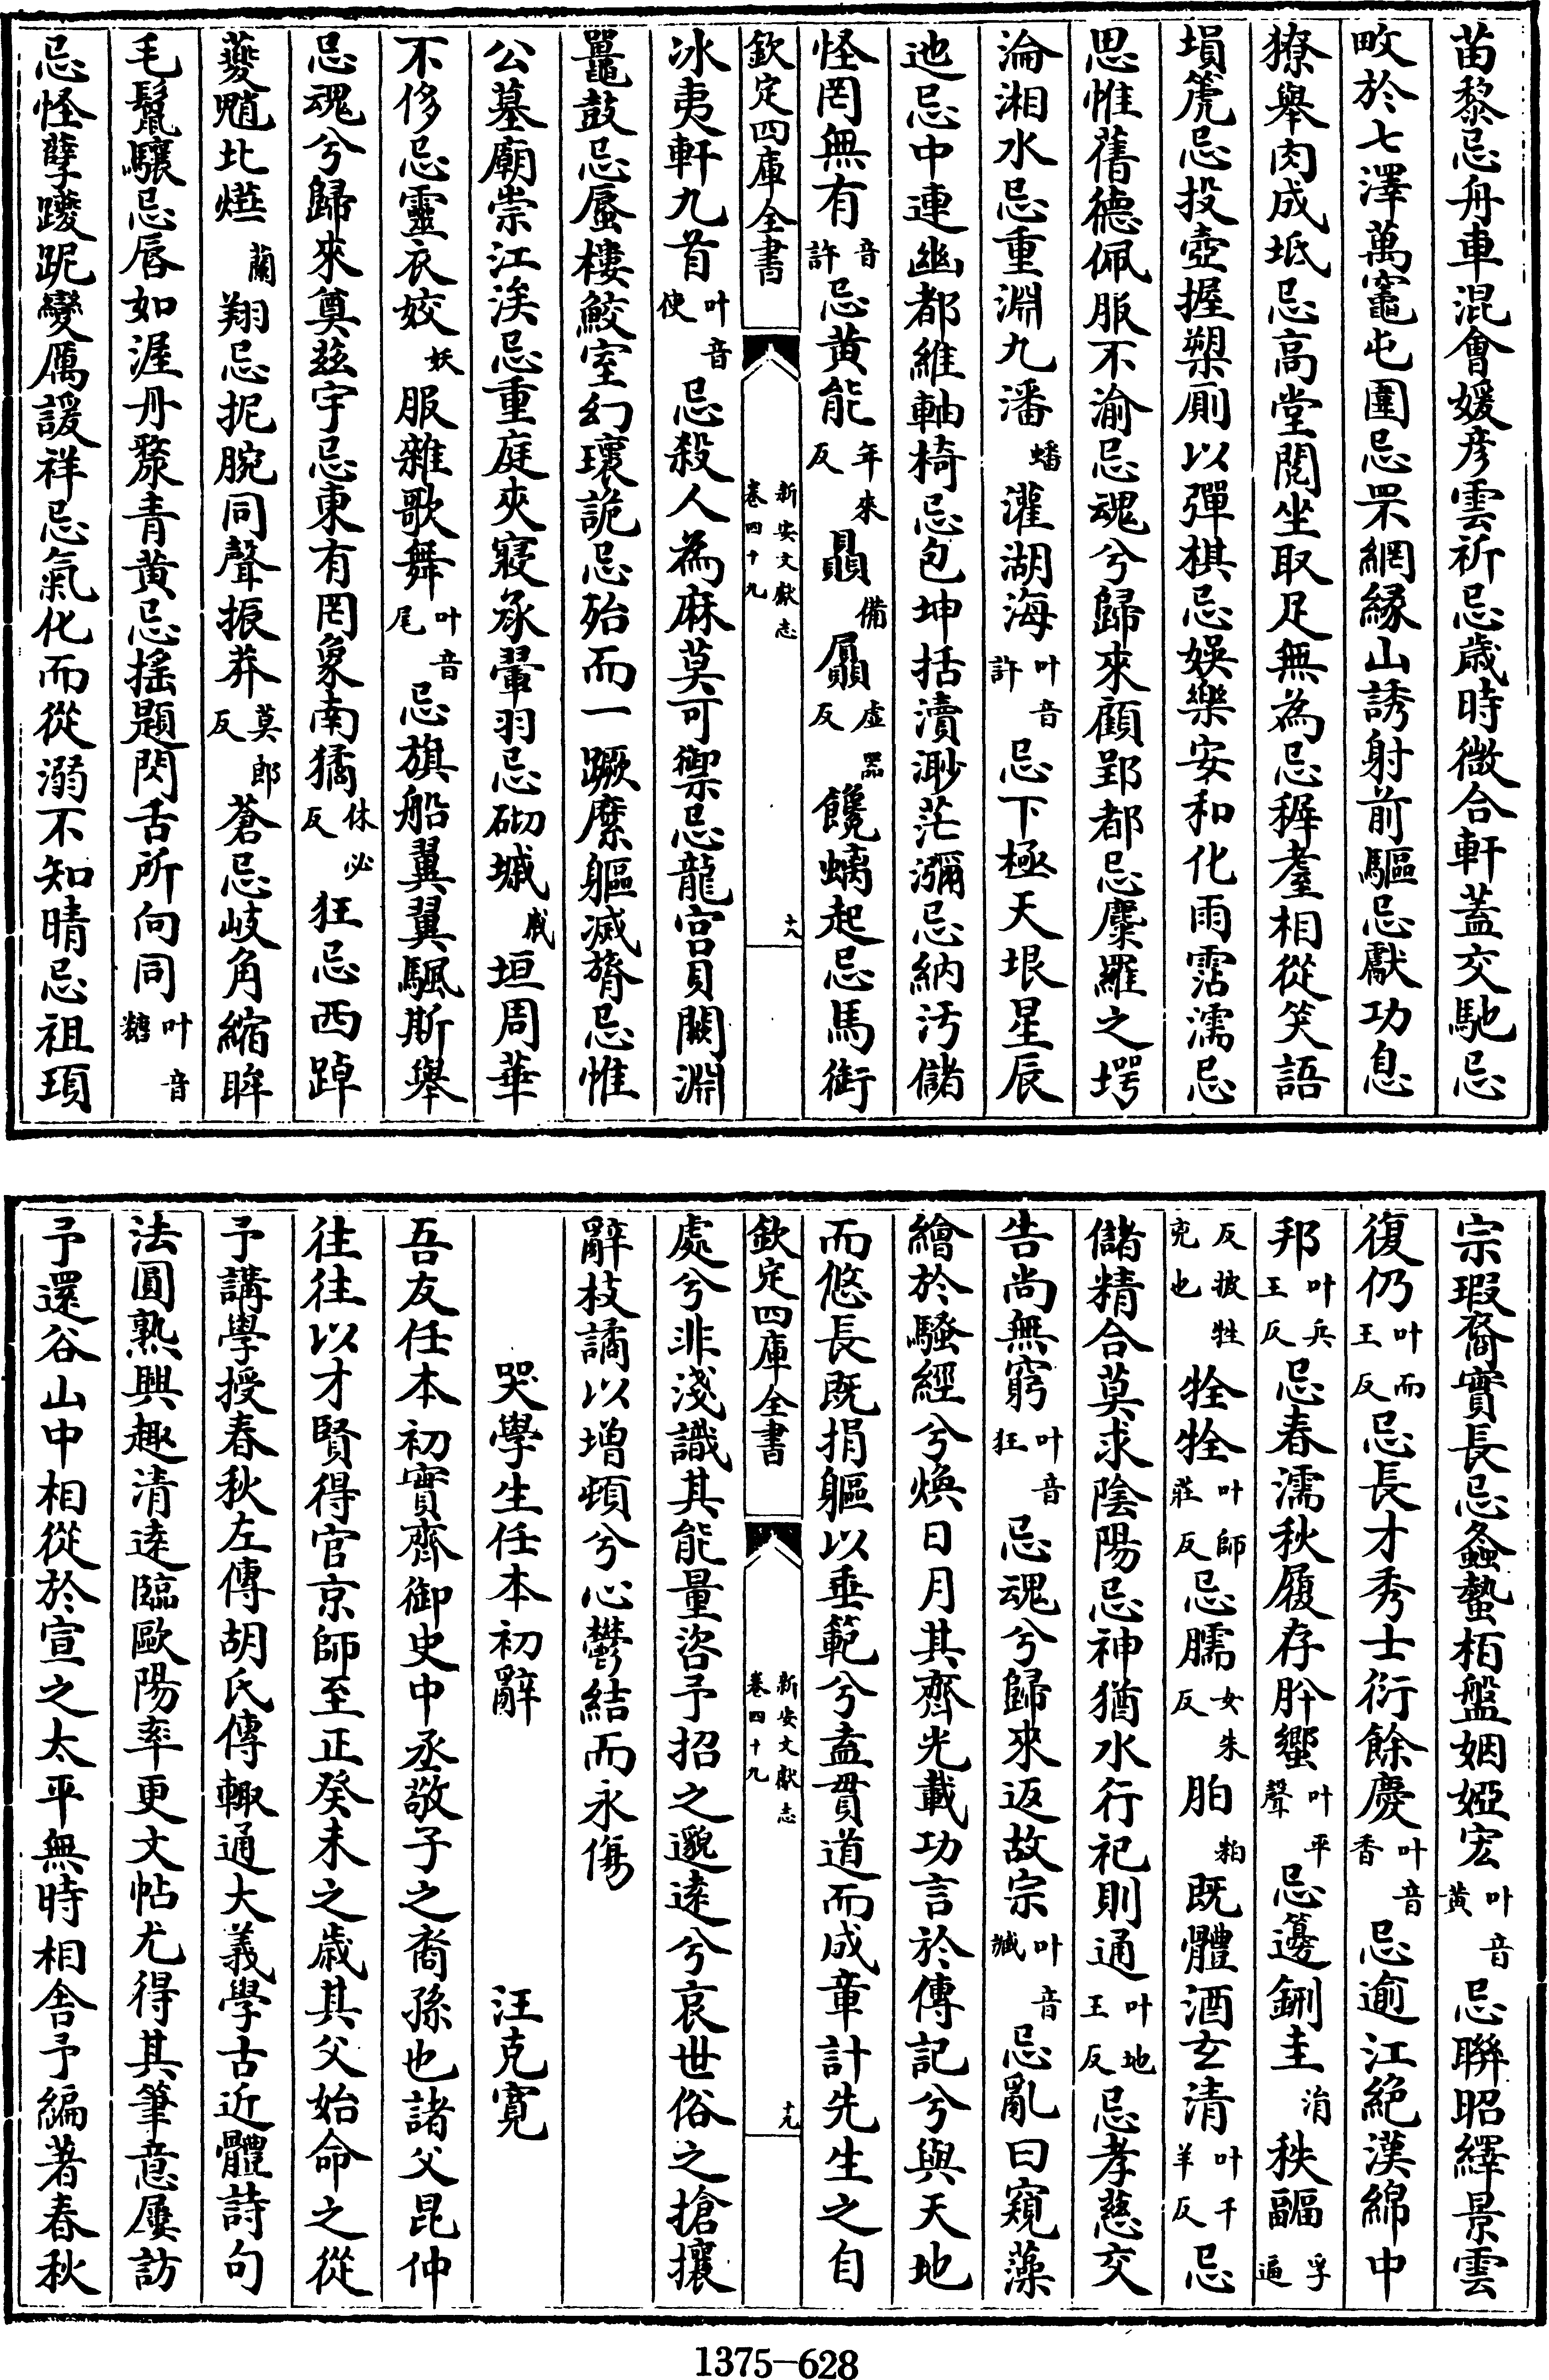 苗黎忌舟車混會媛彥雲祈忌歳時微合軒蓋交馳忌
畋於七澤萬竈屯圍忌罘網縁山誘射前驅忌獻功息
獠舉肉成坻忌高堂閲坐取足無為忌稺耋相從笑語
塤篪忌投壺握槊厠以彈棋忌娛樂安和化雨霑濡忌
思惟舊德佩服不渝忌魂兮歸來顧郢都忌麋羅之堮
淪湘水忌重淵九潘蟠灌湖海叶音許忌下極天垠星辰
迆忌中連幽都維軸椅忌包坤括瀆渺茫瀰忌納汚儲
怪罔無有音許忌黄能年來反贔備屭虛器反饞螭起忌馬銜
欽定四庫全書 新安文獻志卷四十九 十八
冰夷軒九首叶音使忌殺人為麻莫可禦忌龍宫貝闕淵
鼉鼓忌蜃樓鮫室幻瓌詭忌殆而一蹶縻軀滅膂忌惟
公墓廟崇江涘忌重庭夾寢承翬羽忌砌墄戚垣周華
不侈忌靈衣姣妖服雜歌舞叶音尾忌旗船翼翼颿斯舉
忌魂兮歸來奠兹宇忌東有罔象南獝休必反狂忌西踔
夔魈北爁蘭翔忌扼腕同聲振莽莫郎反蒼忌岐角縮眸
毛鬣驤忌唇如渥丹漦青黄忌搖題閃舌所向同叶音韃
忌怪孽躨跜變厲諼祥忌氣化而從溺不知晴忌祖頊
宗瑕裔實長忌螽蟄栢盤姻婭宏叶音黄忌聯昭繹景雲
復仍叶而王反忌長才秀士衍餘慶叶音香忌逾江絶漢綿中
邦叶兵王反忌春濡秋履存肸蠁叶平聲忌籩鉶圭涓秩疈孚逼
反披牲兜也牷牷叶師莊反忌臑女朱反胉粕既體酒玄清叶千羊反忌
儲精合莫求陰陽忌神猶水行祀則通叶地王反忌孝慈交
告尚無窮叶音狂忌魂兮歸來返故宗叶音臧忌亂曰窺藻
繪於騷經兮煥日月其齊光載功言於傳記兮與天地
而悠長既捐軀以垂範兮盍貫道而成章計先生之自
欽定四庫全書 新安文獻志卷四十九 十九
處兮非淺識其能量咨予招之邈逺兮哀世俗之搶攘
辭枝譎以增頓兮心鬱結而永傷
哭學生任本初辭 汪克寛
吾友任本初實齊御史中丞敬子之裔孫也諸父昆仲
往往以才賢得官京師至正癸未之歳其父始命之從
予講學授春秋左傳胡氏傳輙通大義學古近體詩句
法圓熟興趣清逺臨歐陽率更文帖尤得其筆意屢訪
予還谷山中相從於宣之太平無時相舎予編著春秋
1375-628